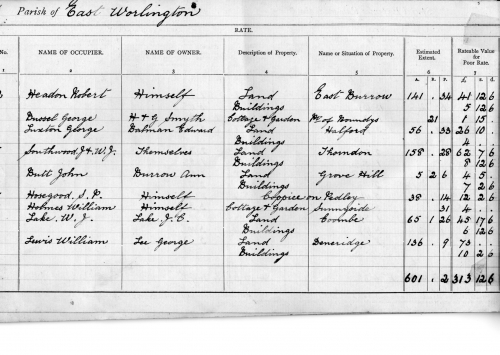 Parish of East Worlington
RATE.
No. NAME OF OCCUPIER. NAME OF OWNER. Description of Property. Name or Situation of Property. Estimated Extent. Rateable Value for Poor Rate.
1 2 3 4 5 6 7
A. R. P. £ s. d.
Headon Robert Himself Land East Burrow 141 . 34 41 12 6
Buildings 5 12 6
Bussel George H & G Smyth Cottage & Garden Pt of Boundys 21 1 15 .
Luxton George Bateman Edward Land Halford 56 . 33 26 10 .
Buildings 4 . .
Southwood J & W. J. Themselves Land Thorndon 158 . 28 62 7 6
Buildings 8 12 6
Butt John Burrow Ann Land Grove Hill 5 2 6 4 5 .
Buildings 7 2 6
Hosegood S. P. Himself Coppice in Pedley 38 . 14 12 2 6
Holmes William Himself Cottage & Garden Sunnyside 31 4 . .
Lake W. J. Lake J. C. Land Coombe 65 1 26 45 17 6
Buildings 6 12 6
Lewis William Lee George Land Beneridge 136 . 9 73 . .
Buildings 10 2 6
601 . 2 313 12 6